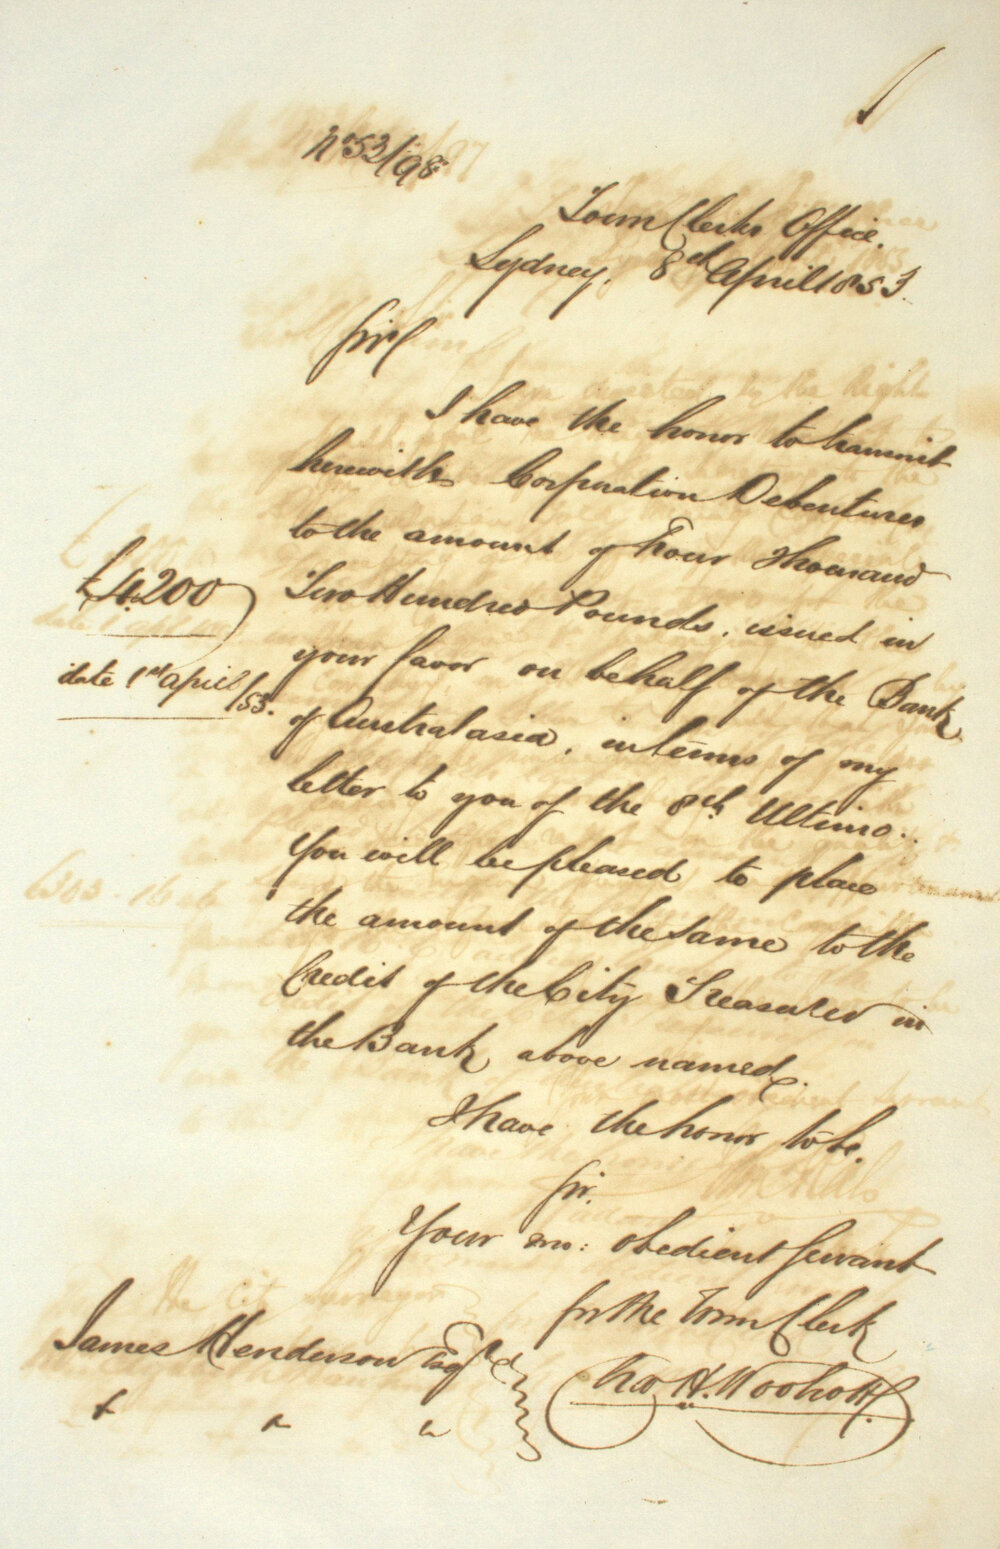 No 53/98
Town Clerks Office.
Sydney. 8th April 1853.
Sir/
I have the honor to transmit
herewith Corporation Debentures
to the amount of Four Thousand
£4,200
Two Hundred Pounds. issued in
your favor on behalf of the Bank
date 1st April/53.
of Australasia. in terms of my
letter to you of the 8th Ultimo.
You will be pleased to place
the amount of the same to the
Credit of the City Treasurer in
the Bank above named.
I have the honor to be.
Sir.
Your mo: obedient Servant
for the Town Clerk
James Henderson Esqre
H. Woolcott